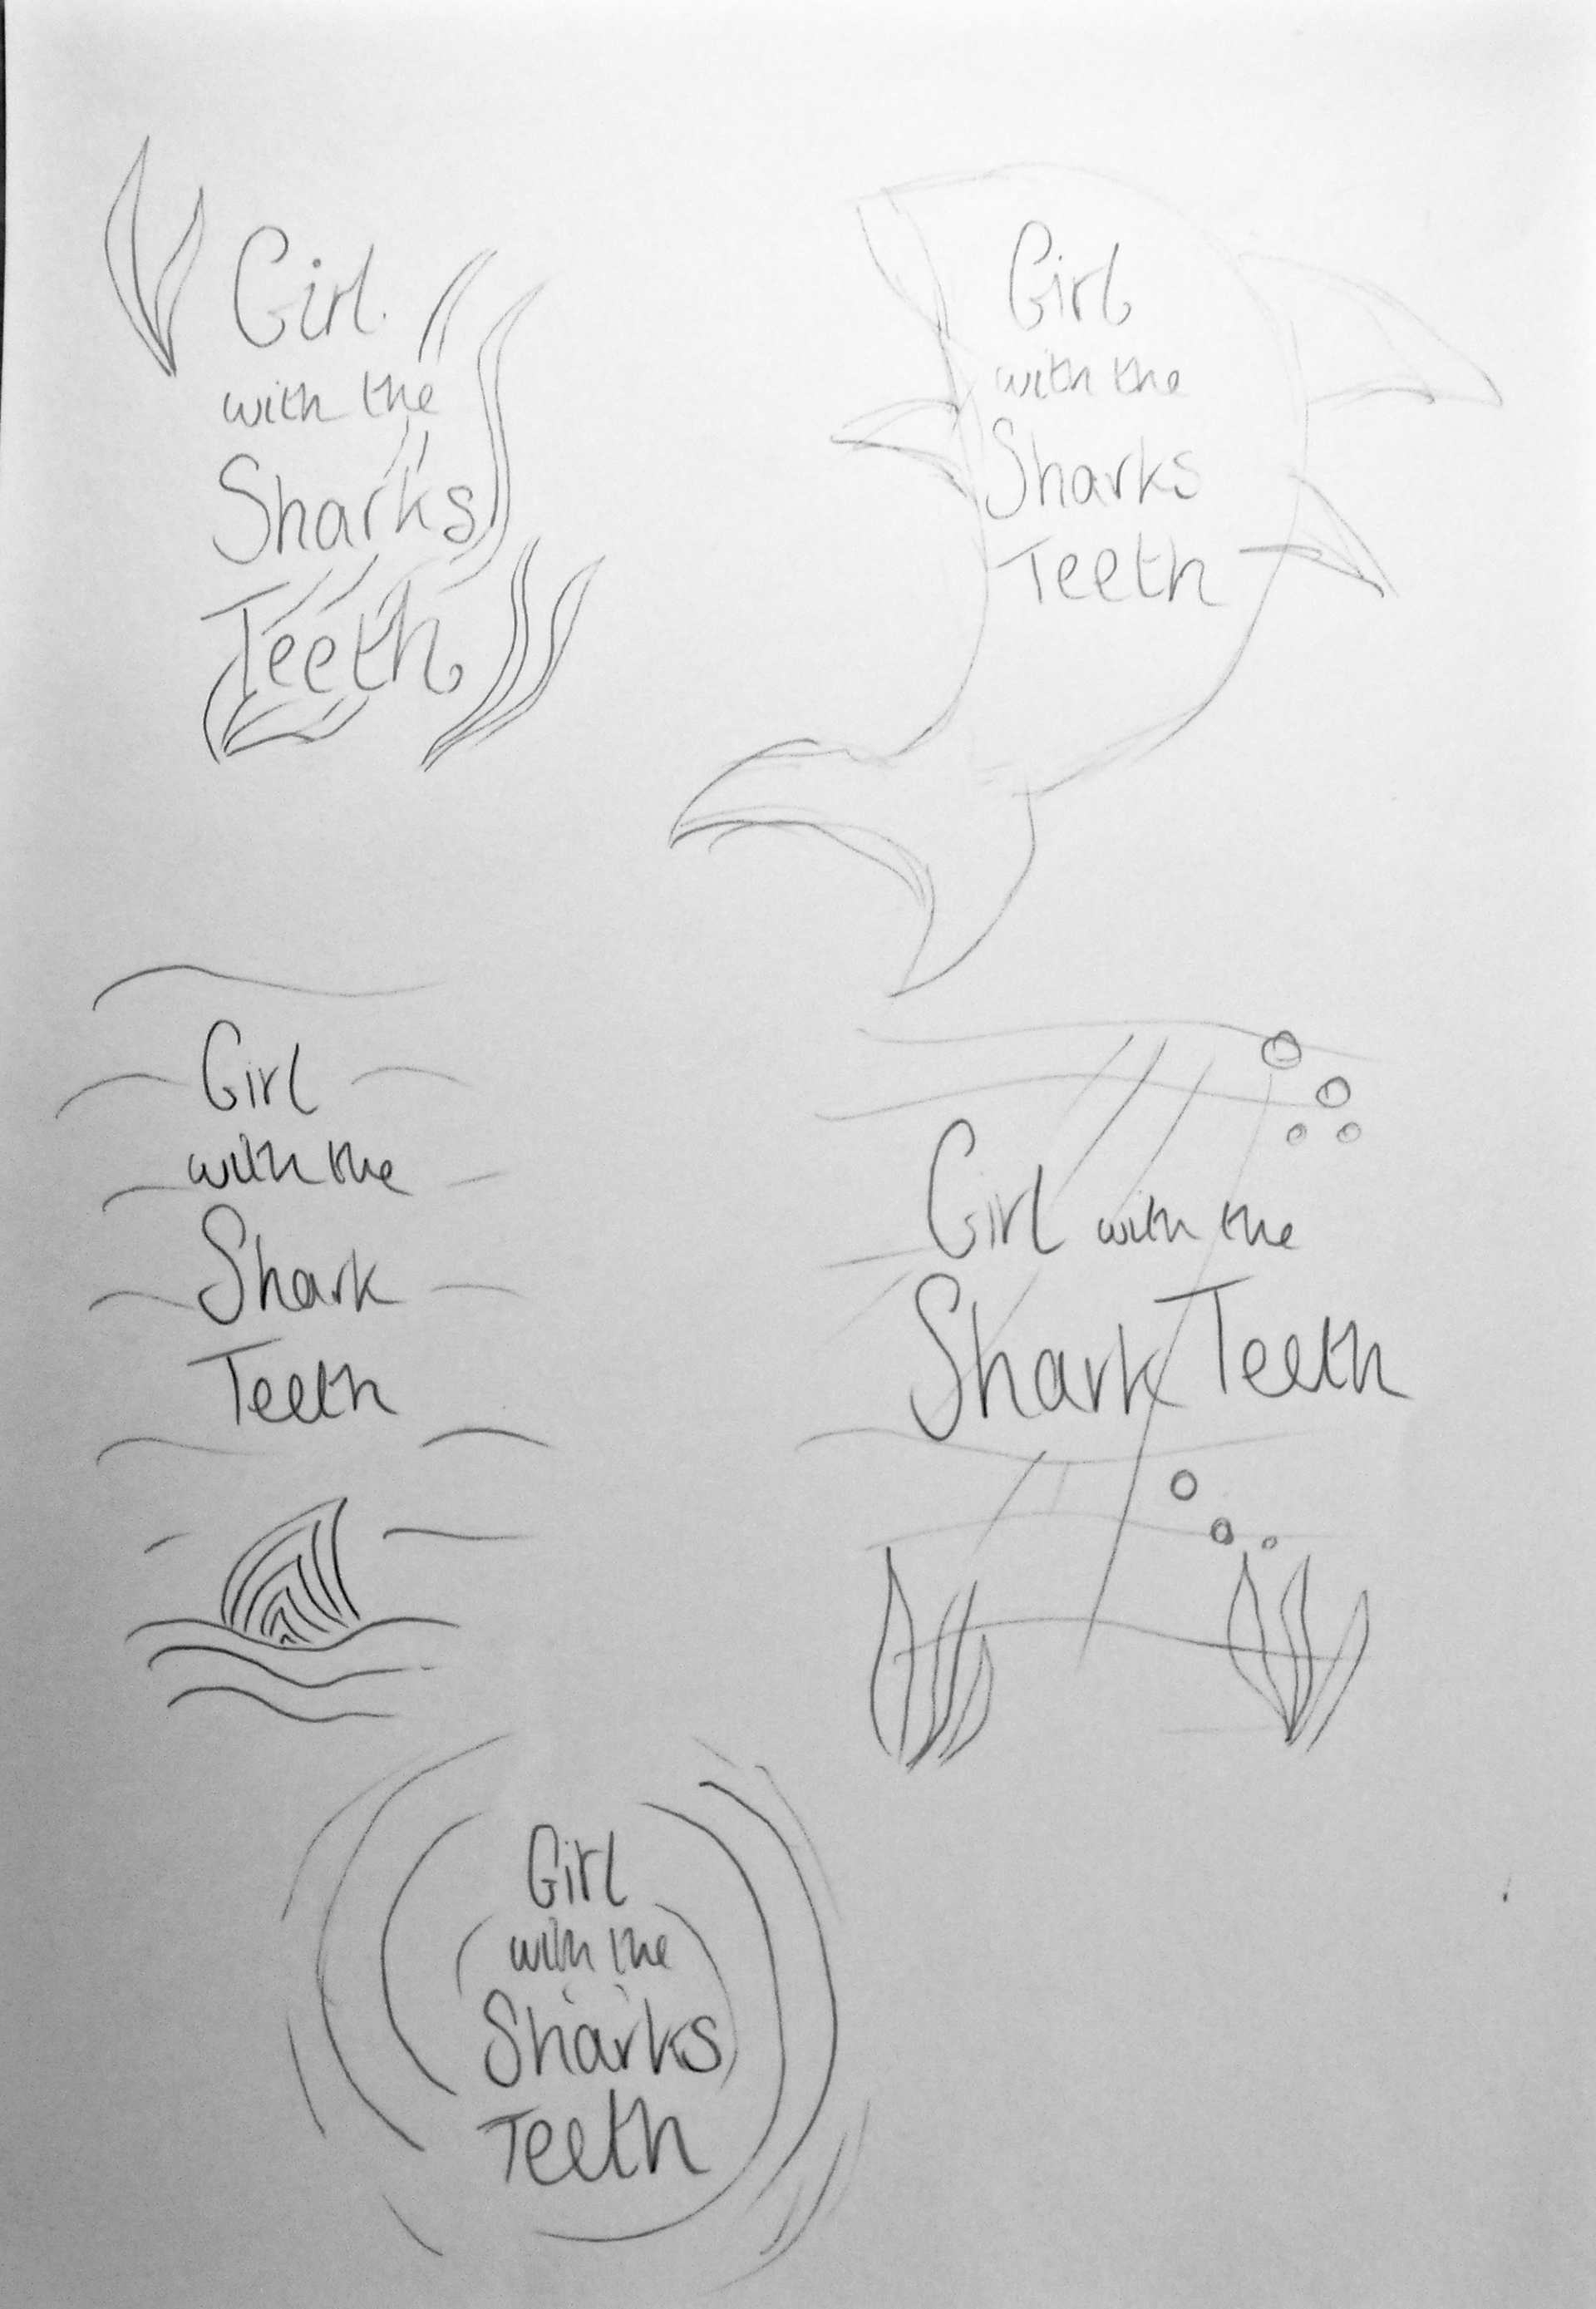 Girl
with the
Sharks
Teeth
Girl
with the
Sharks
Teeth
Girl
with the
Shark
Teeth
Girl with the
Shark Teeth
Girl
with the
Sharks
Teeth